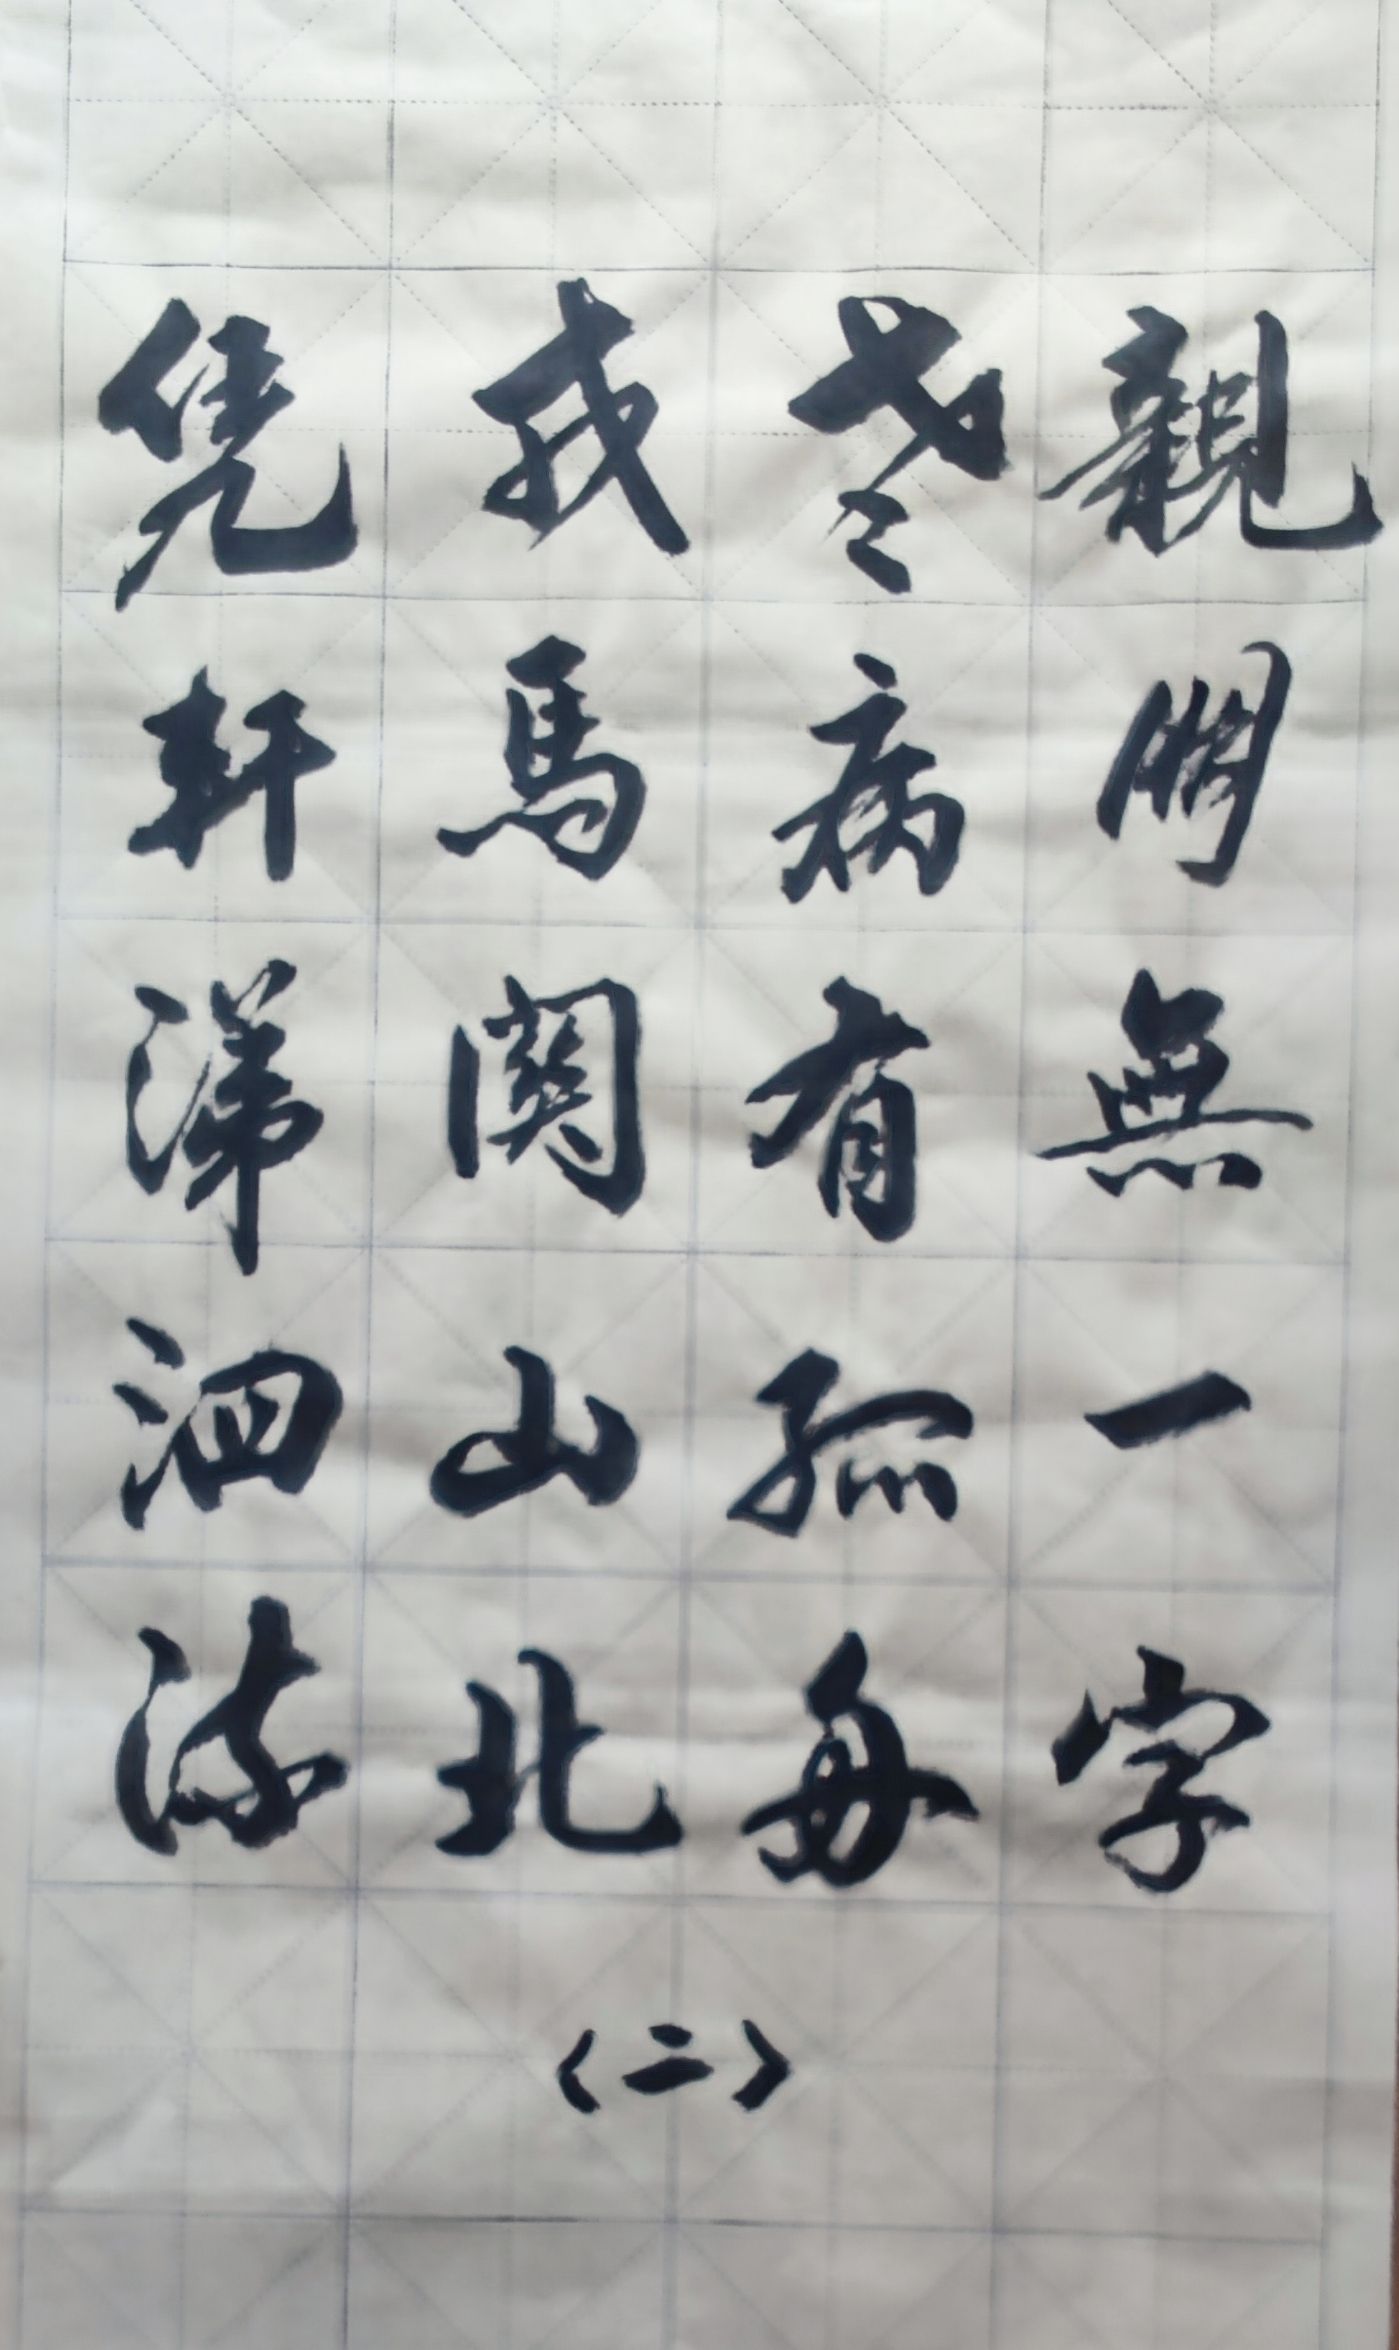 親朋無一字
老病有孤舟
戎馬關山北
凭軒涕泗流
(二)